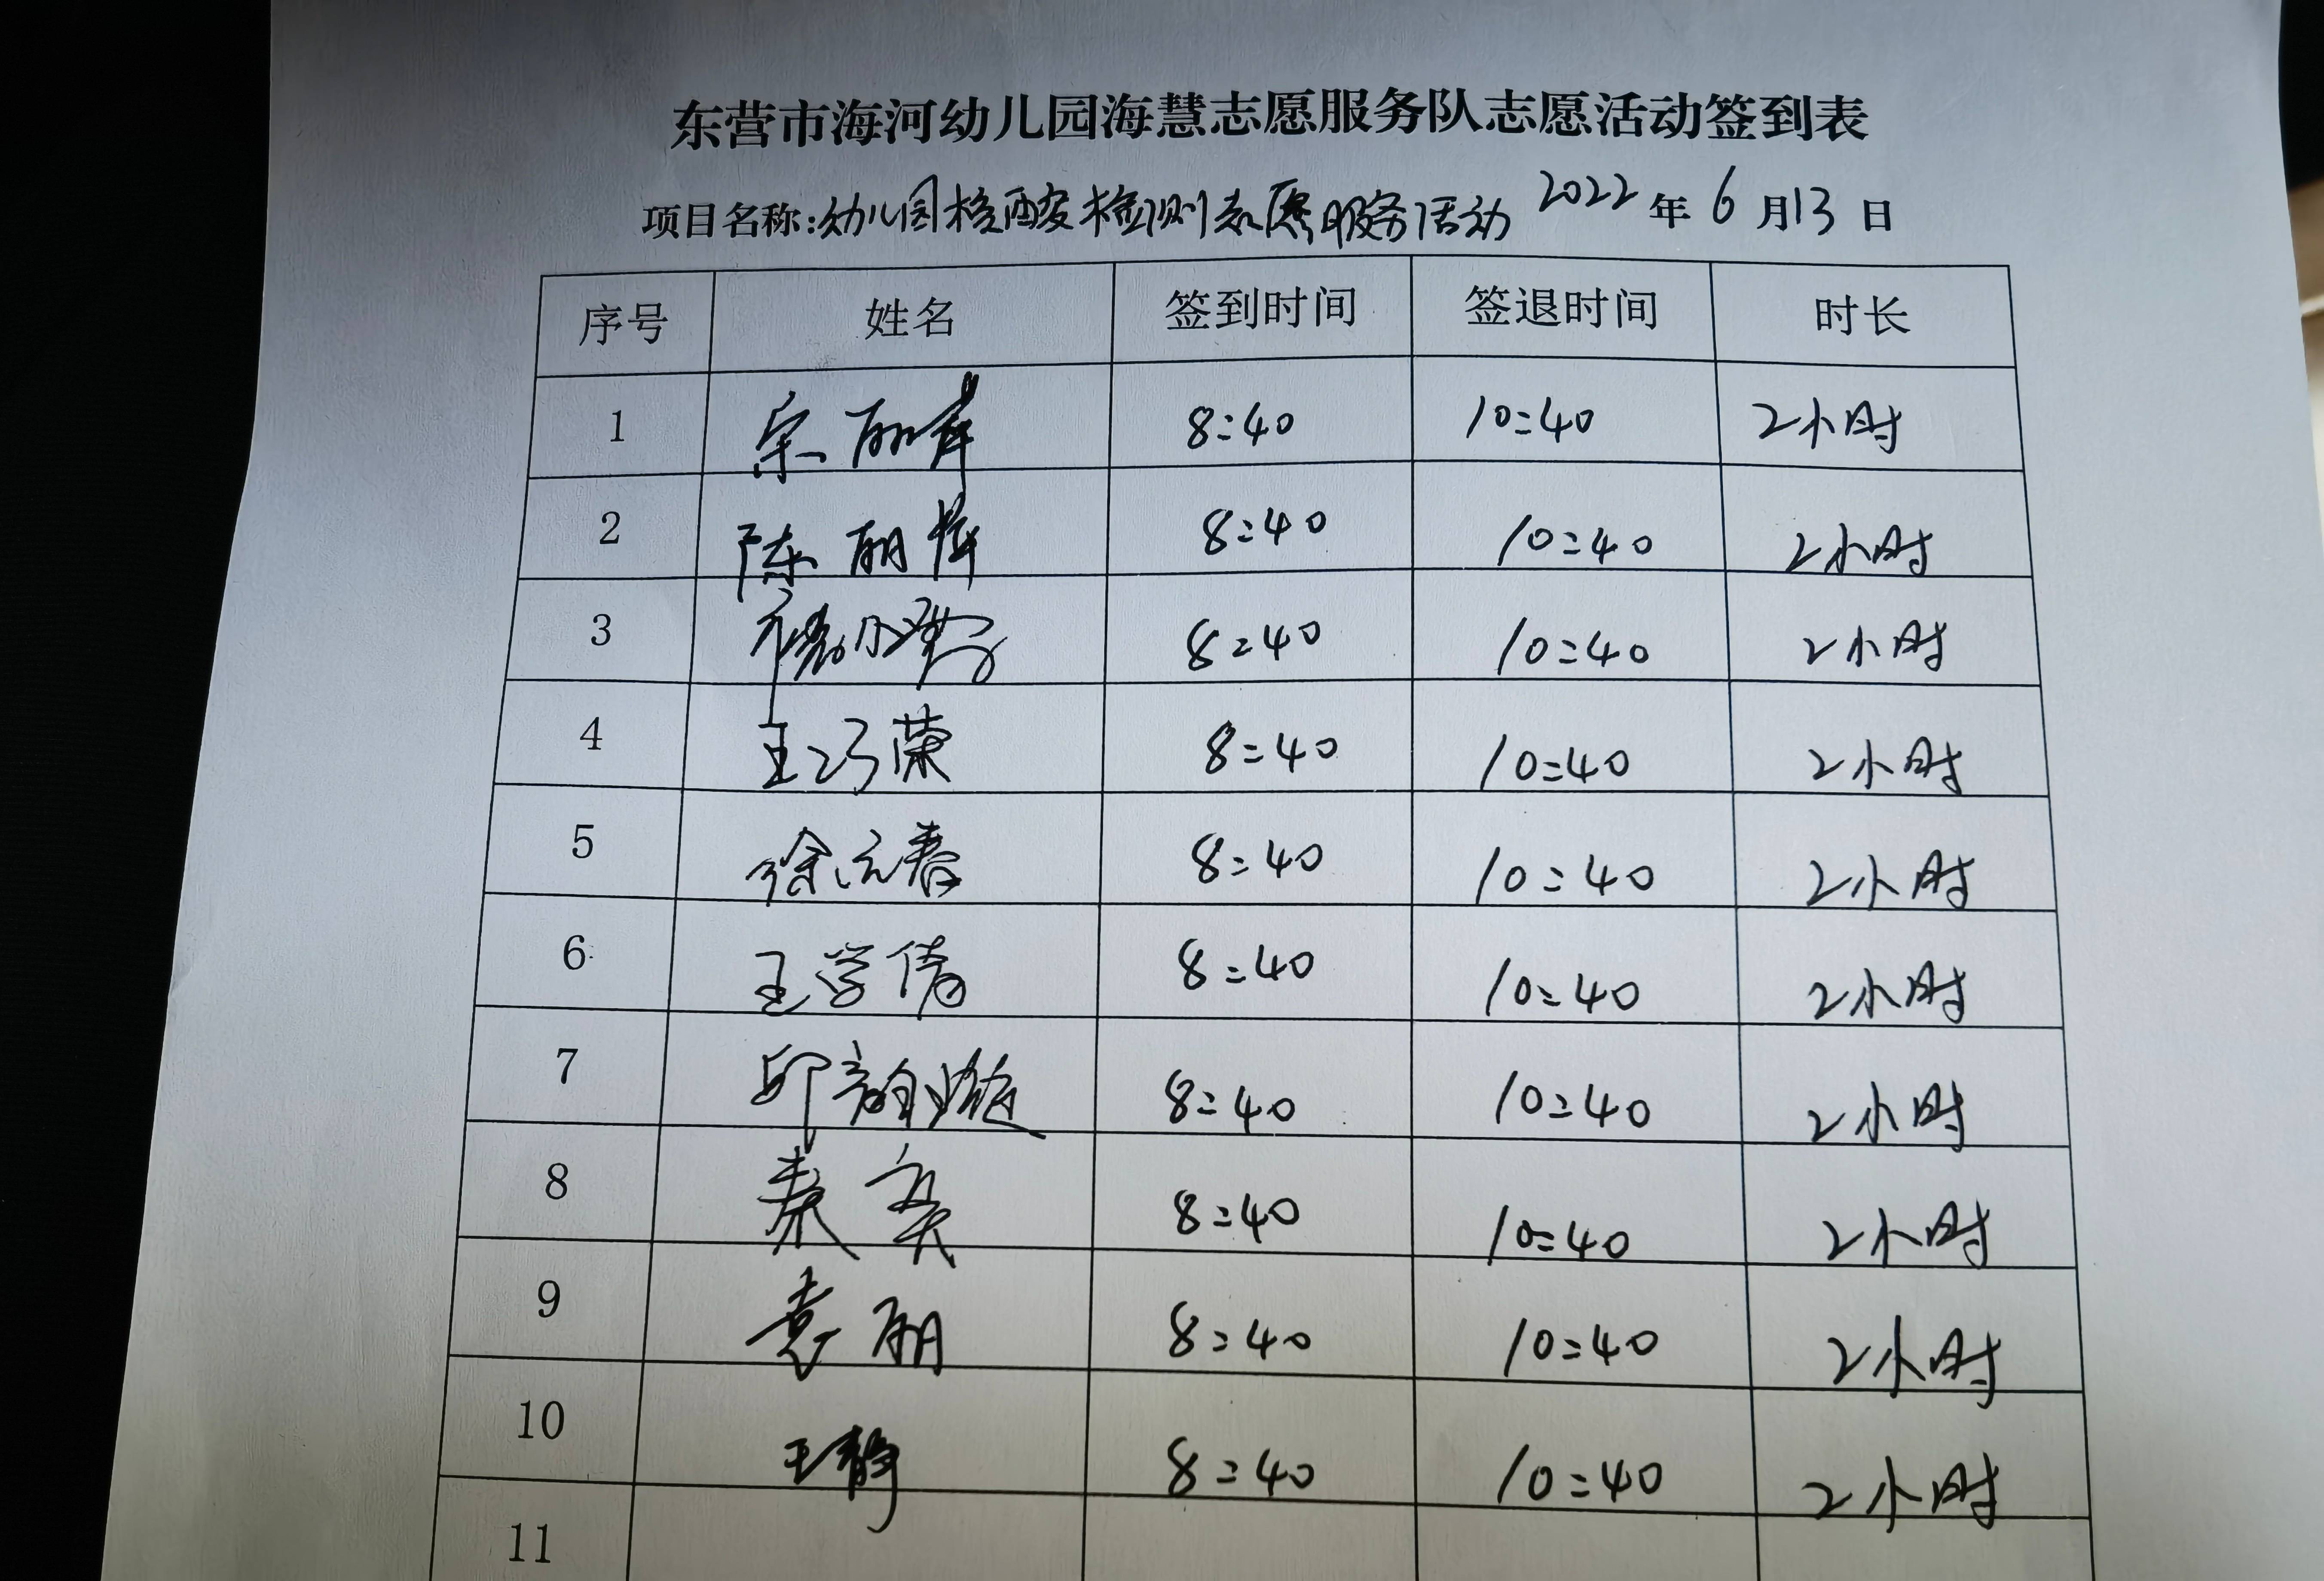 东营市海河幼儿园海慧志愿服务队志愿活动签到表
项目名称:幼儿园核酸检测志愿服务活动 2022年6月13日
序号 姓名 签到时间 签退时间 时长
1 宗丽萍 8:40 10:40 2小时
2 陈丽萍 8:40 10:40 2小时
3 8:40 10:40 2小时
4 王巧荣 8:40 10:40 2小时
5 徐元春 8:40 10:40 2小时
6 王学倩 8:40 10:40 2小时
7 8:40 10:40 2小时
8 秦 8:40 10:40 2小时
9 袁丽 8:40 10:40 2小时
10 王静 8:40 10:40 2小时
11